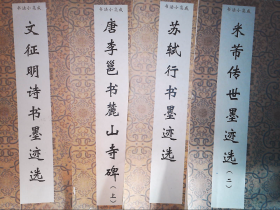 书法小集成
文征明诗书墨迹选
书法小集成
唐李邕书麓山寺碑（上）
书法小集成
苏轼行书墨迹选
书法小集成
米芾传世墨迹选（二）